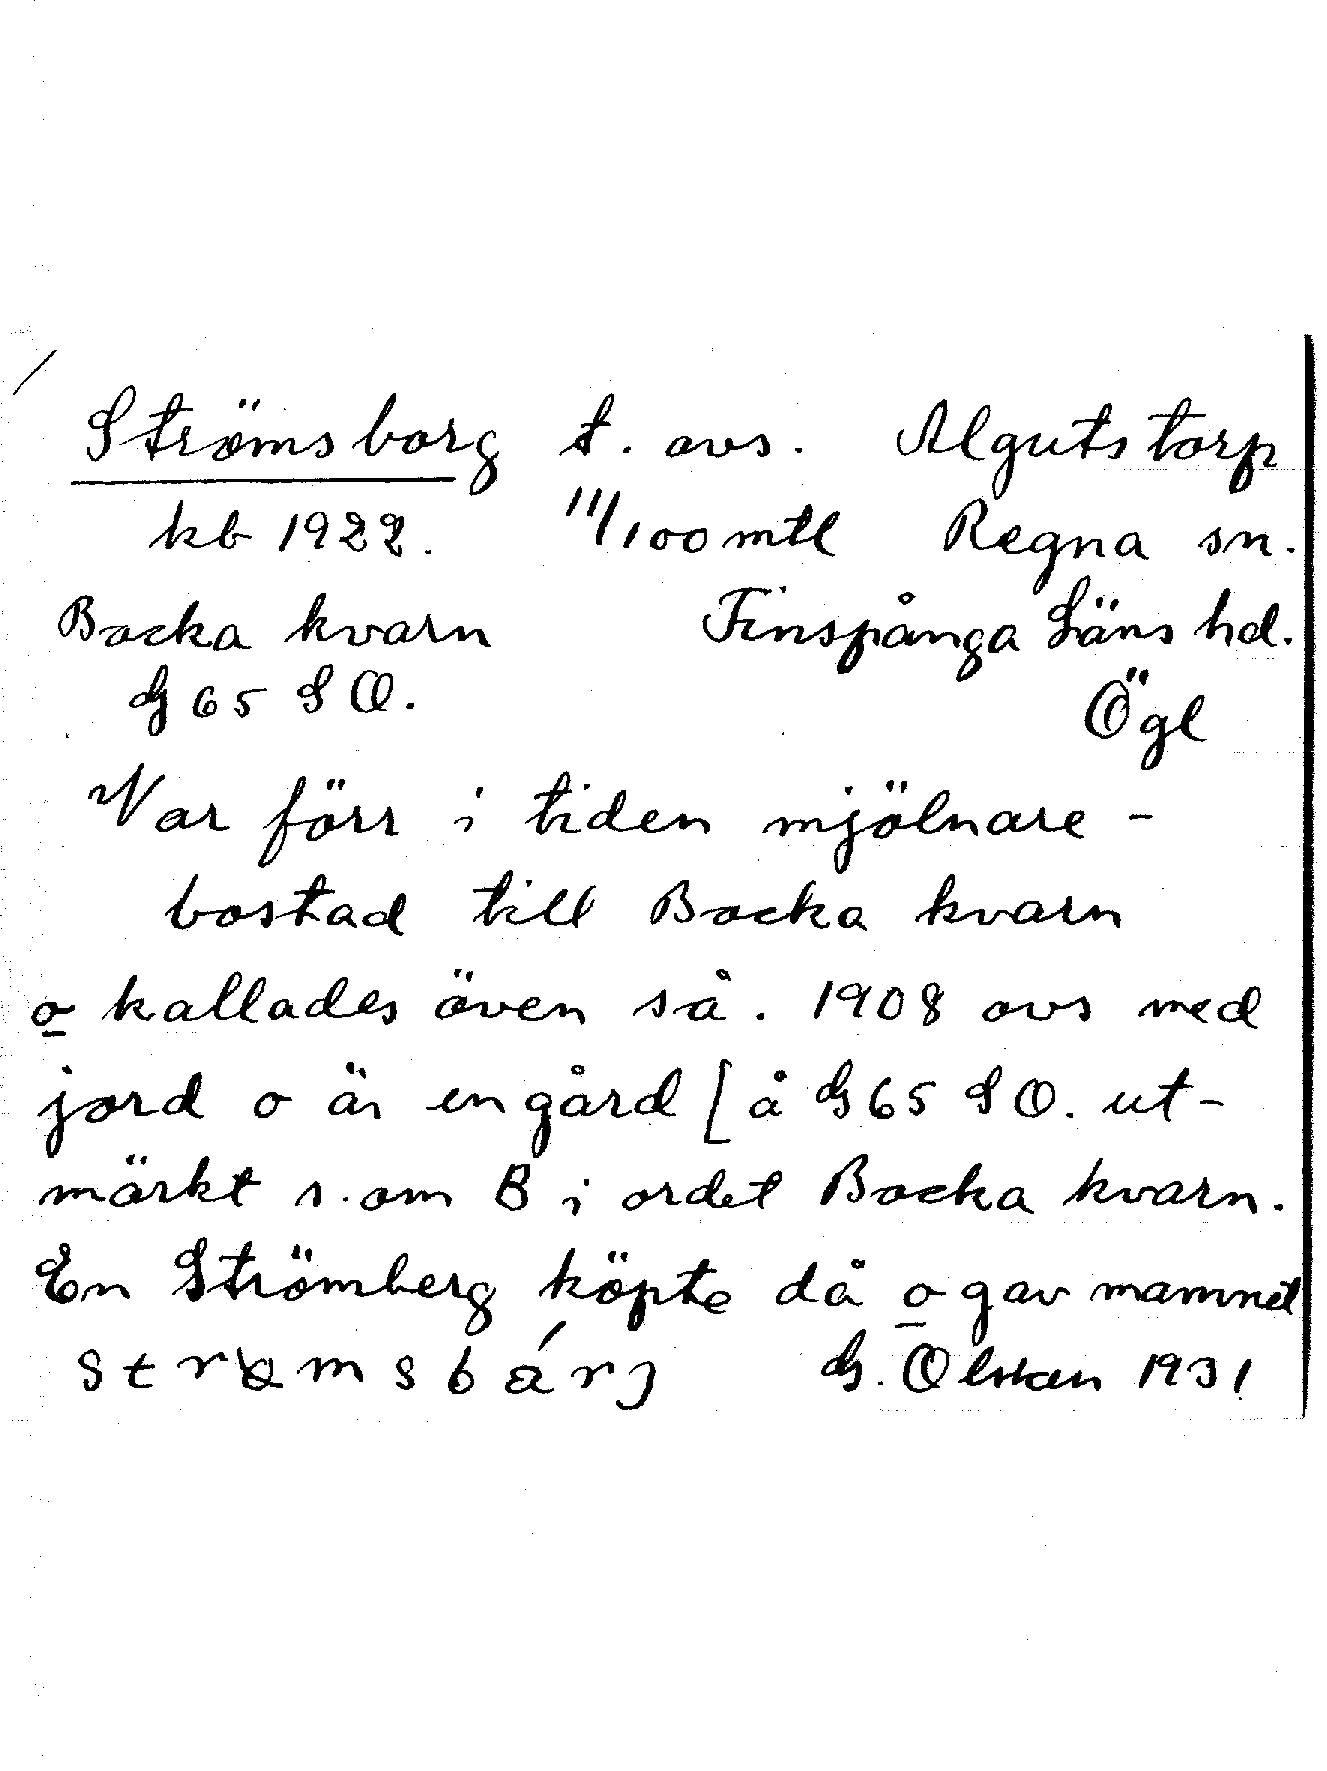 Strömsborg t. avs. Algutstorp
kb 1922. 11/100 mtl Regna sn.
Bocka kvarn Finspånga Läns hd.
G 65 S O. Ögl
Var förr i tiden mjölnare-
bostad till Bocka kvarn
o kallades även så. 1908 avs med
jord o är en gård [å G 65 S O. ut-
märkt s. om B i ordet Bocka kvarn.
En Strömberg köpte då o gav mamnet
G. Olsson 1931